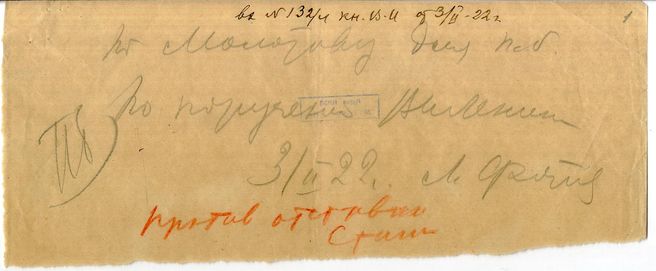 вх № 132/л кн. В.И от 3/II-22 г.
1
т. Молотову для п.б.
По поручению В.И. Ленина
ПБ
3/II 22 г. Л. Фотиева
Против отставки
Сталин